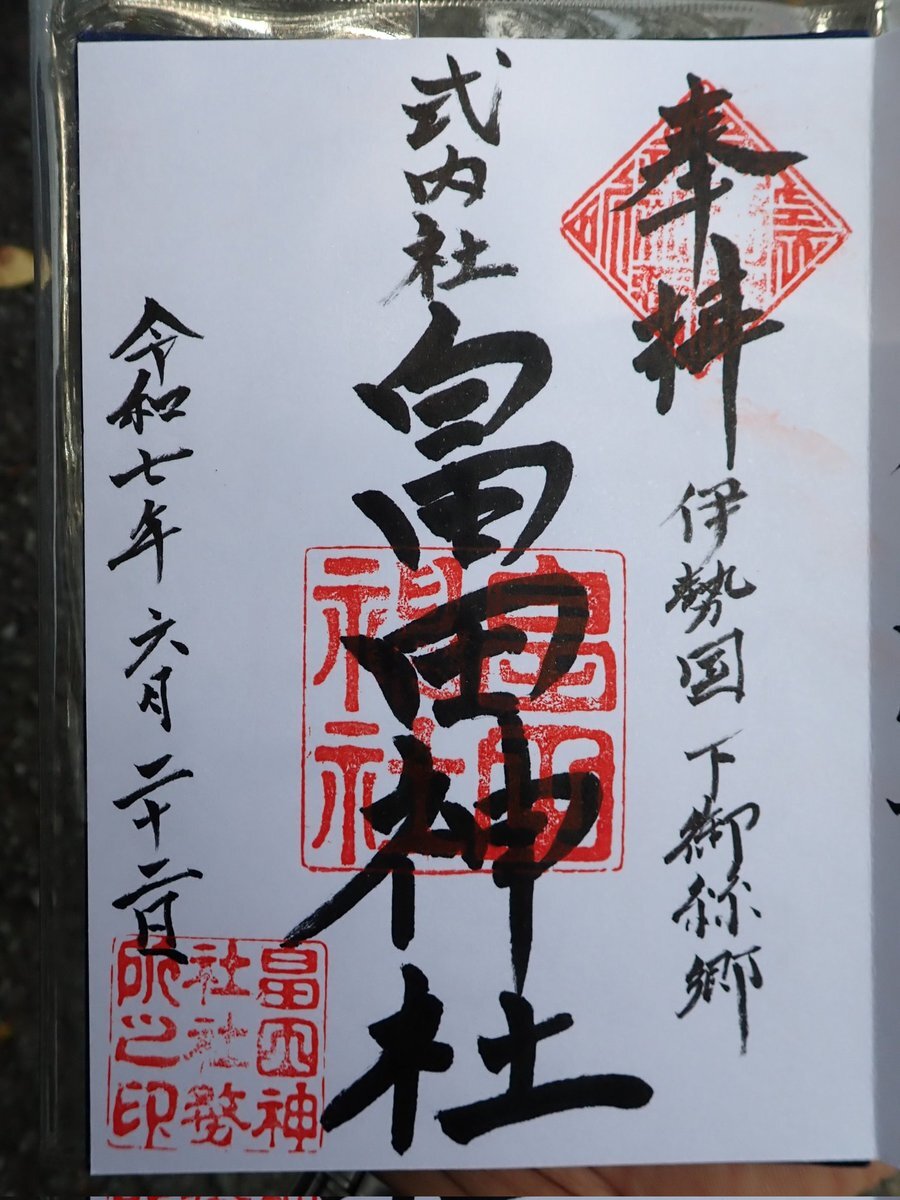 奉拝
伊勢国 下御絲郷
式内社 畠田神社
畠田
神社
令和七年 六月 二十二日
畠田神
社社務
所之印